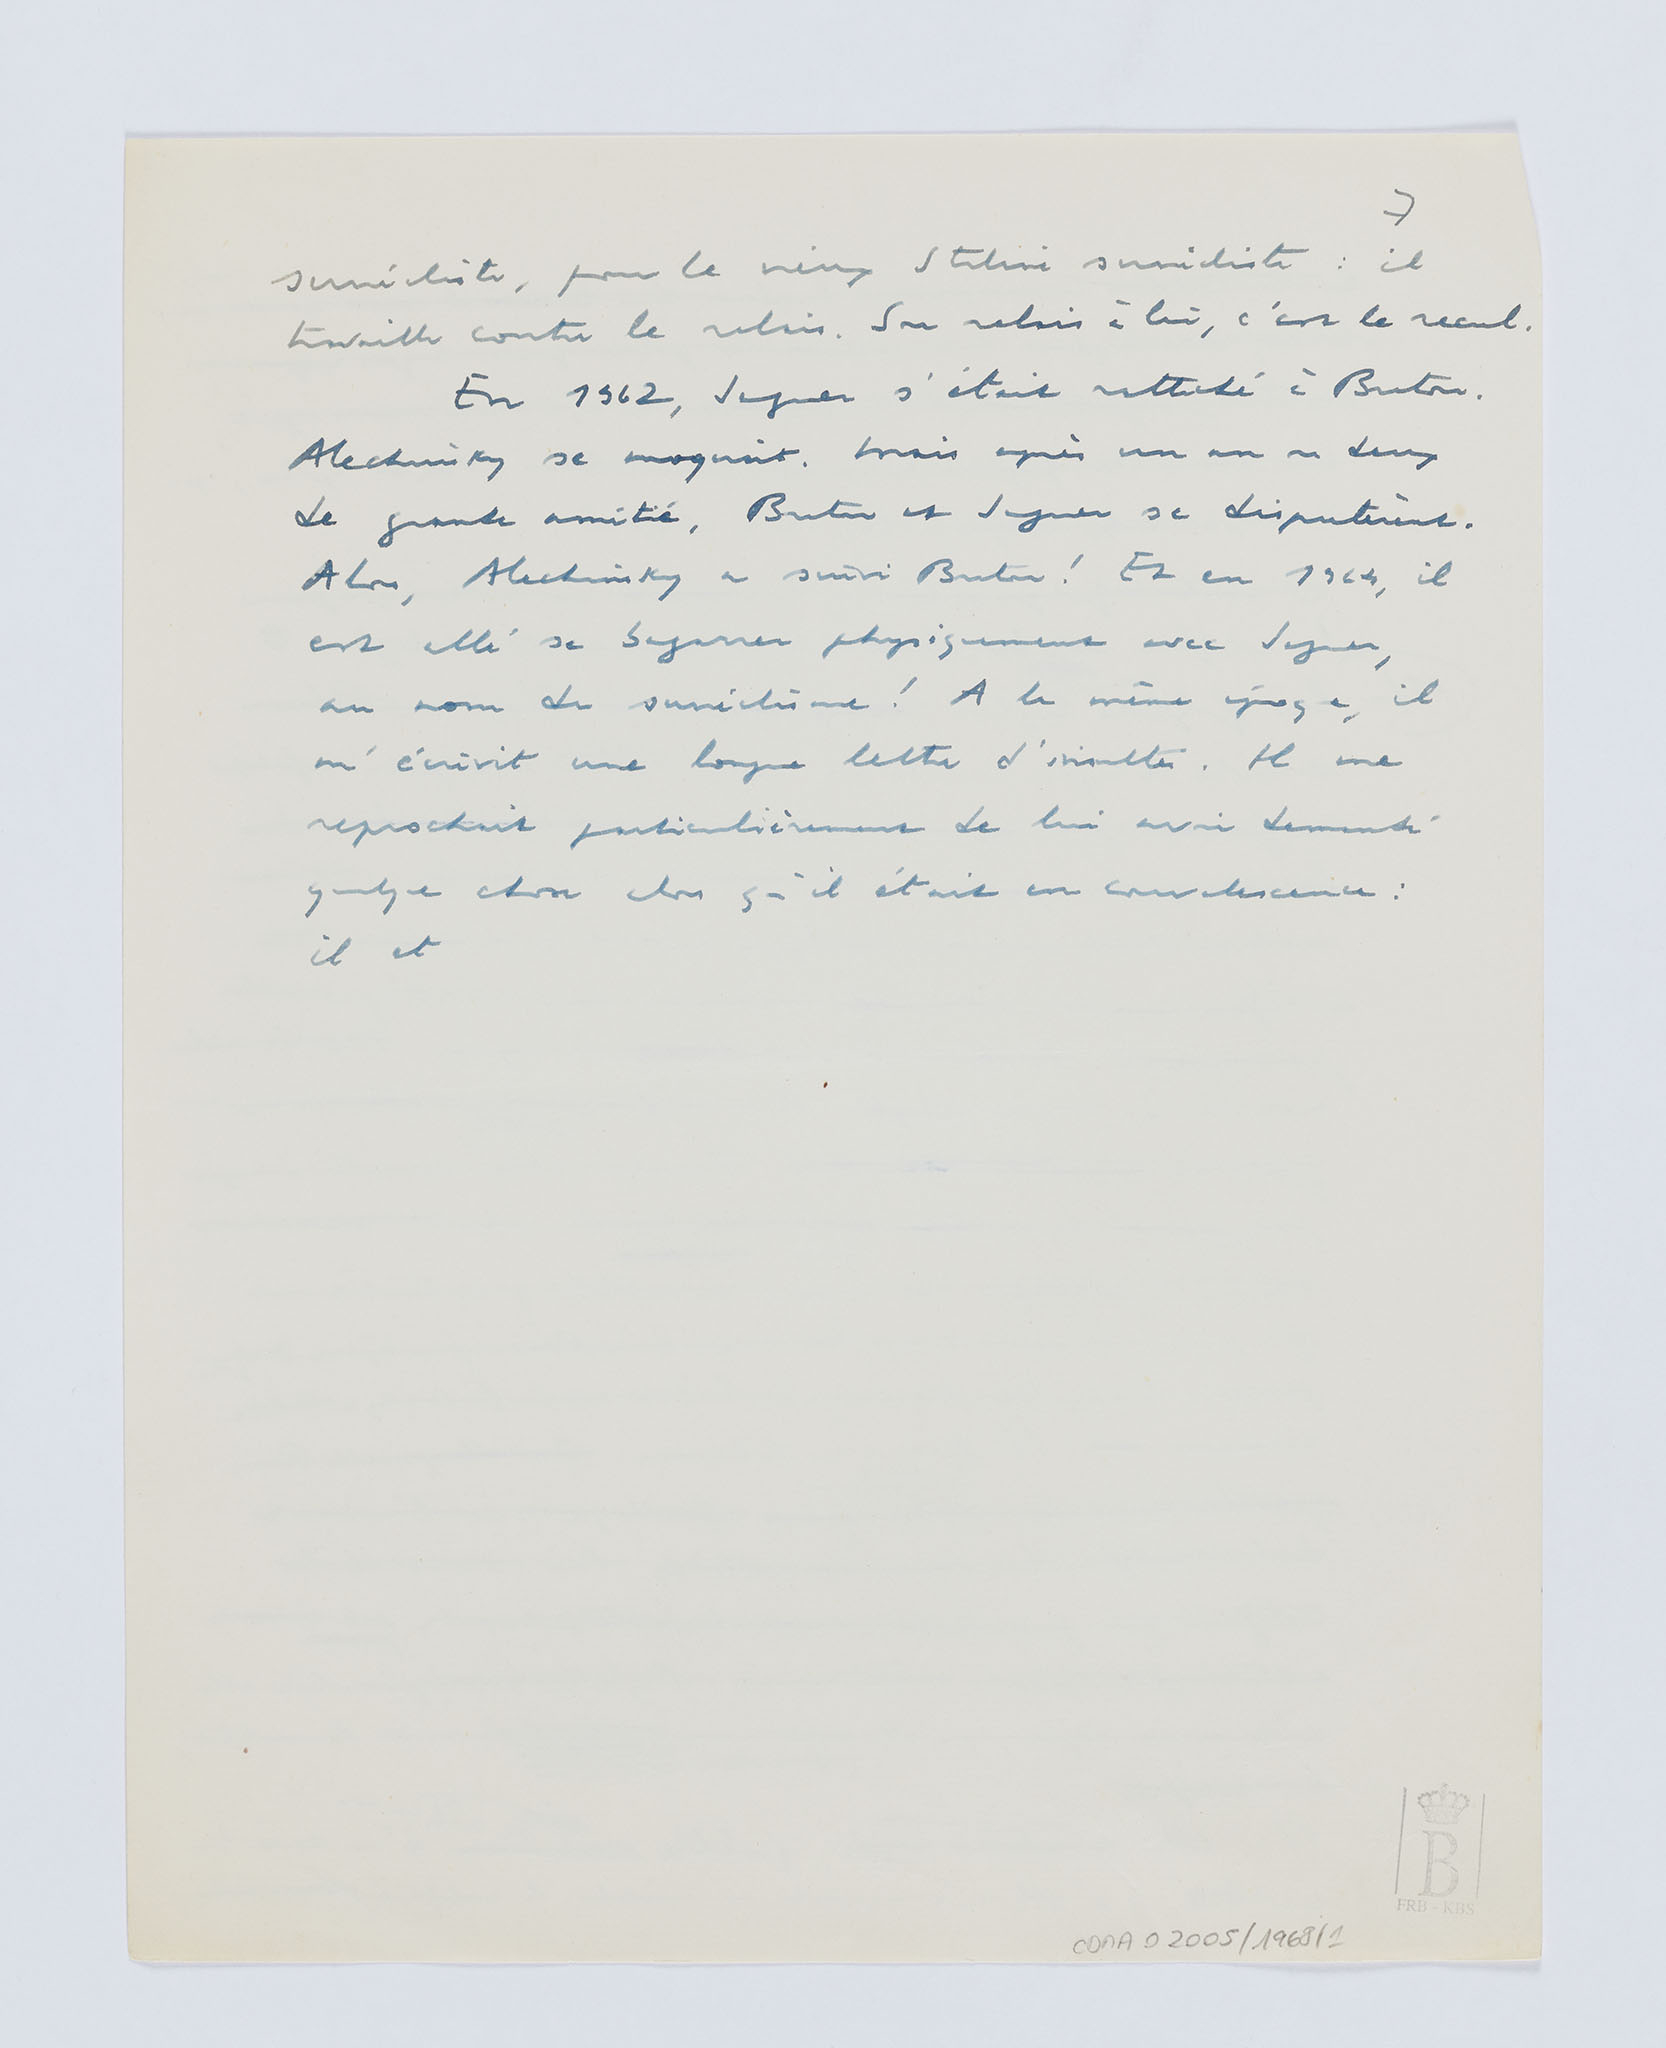 7
surréaliste, pour le vieux Staline surréaliste : il
travaille contre le relais. Son relais à lui, c'est le recul.
En 1962, Jaguer s'était rattaché à Breton.
Alechinsky se moquait. Mais après un an ou deux
de grande amitié, Breton et Jaguer se disputèrent.
Alors, Alechinsky a suivi Breton ! Et en 1964, il
est allé se bagarrer physiquement avec Jaguer,
au nom du surréalisme ! A la même époque, il
m'écrivit une longue lettre d'insultes. Il me
reprochait particulièrement de lui avoir demandé
quelque chose alors qu'il était en convalescence :
il et
B
FRB - KBS
CDMA D 2005/1968/1